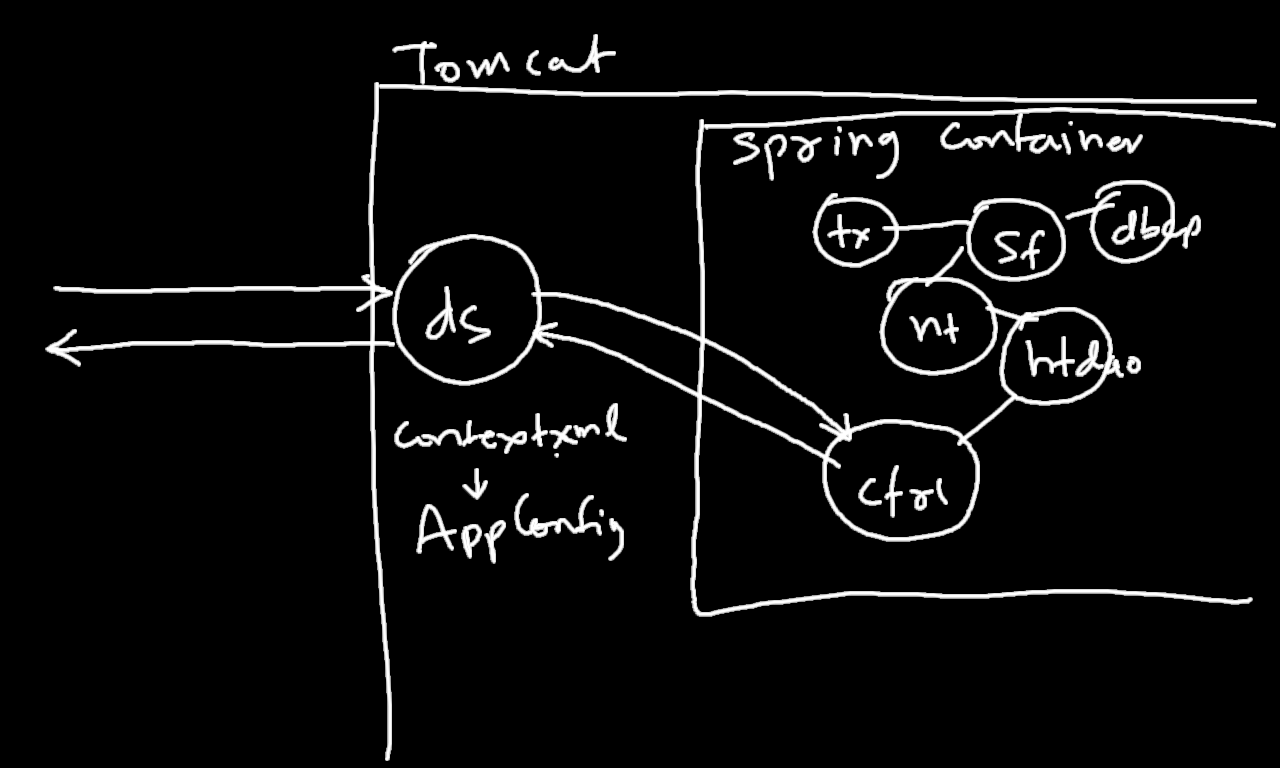 Tomcat
Spring Container
tx
Sf
dbcp
ht
htdao
ds
Ctrl
contextxml
AppConfig